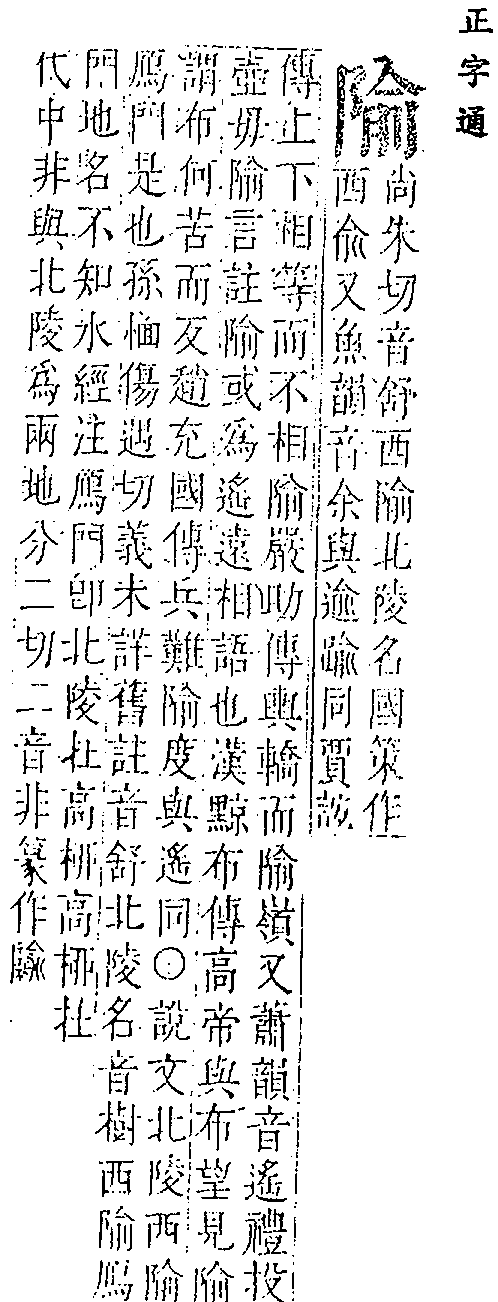 正字通
隃
尚朱切音舒西隃北陵名國策作
西俞又魚韻音余與逾踰同賈誼
傳上下相等而不相隃嚴助傳輿轎而隃嶺又蕭韻音遙禮投
壺毋隃言註隃或爲遙遠相語也漢黥布傳高帝與布望見隃
謂布何苦而反趙充國傳兵難隃度與遙同○說文北陵西隃
鴈門是也孫愐傷遇切義未詳舊註音舒北陵名音樹西隃鴈
門地名不知水經注鴈門卽北陵在高柳高柳在
代中非與北陵爲兩地分二切二音非篆作隃